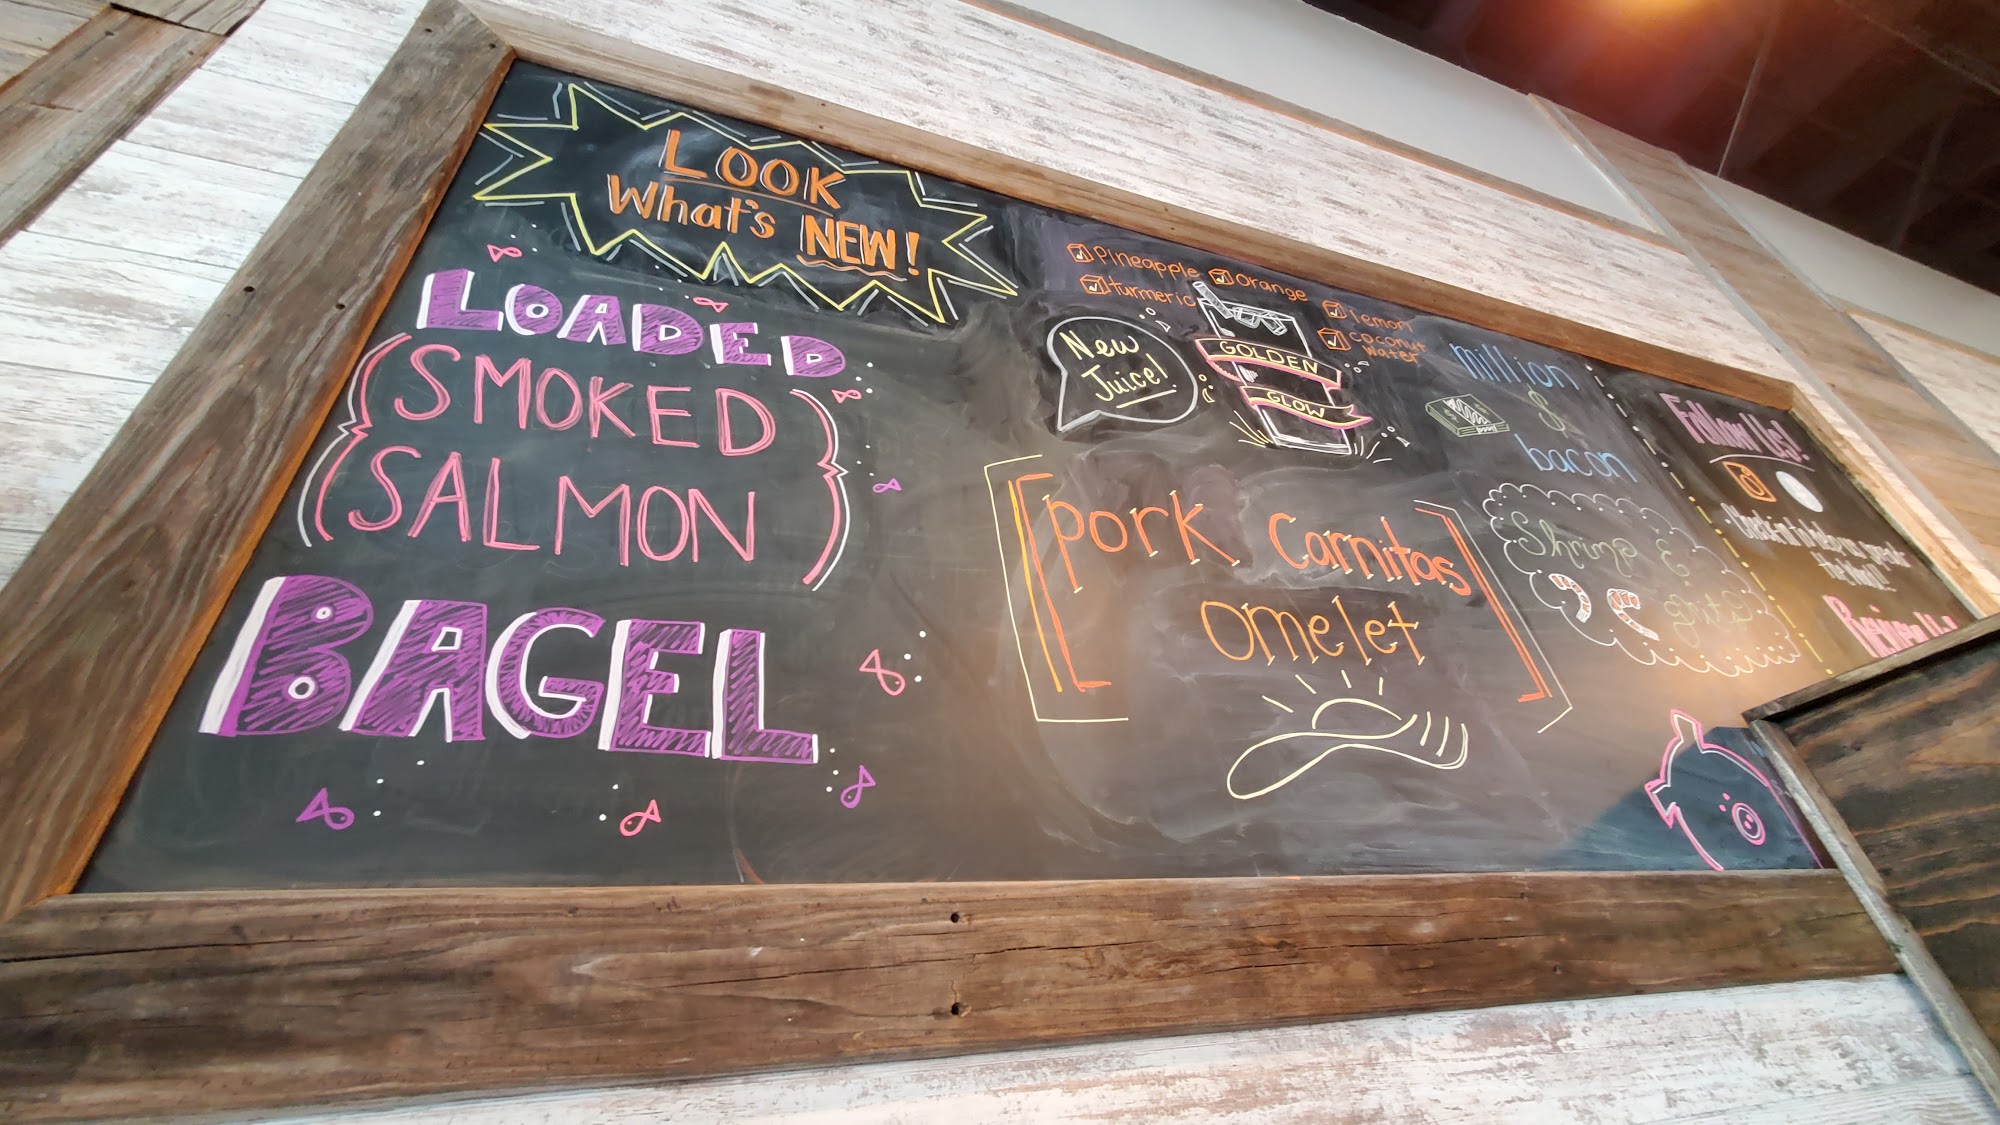 LOOK
What's NEW!
LOADED
SMOKED
SALMON
BAGEL
Pineapple
Orange
turmeric
lemon
coconut
water
New
Juice!
GOLDEN
GLOW
pork Carnitas
omelet
million
$
bacon
Shrimp &
grits
Follow Us!